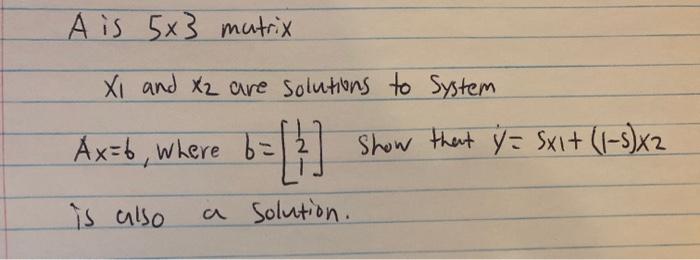 A is 5x3 matrix
x1 and x2 are solutions to System
Ax=b, where b=[1 2 1] Show that y= Sx1+(1-S)x2
is also a solution.